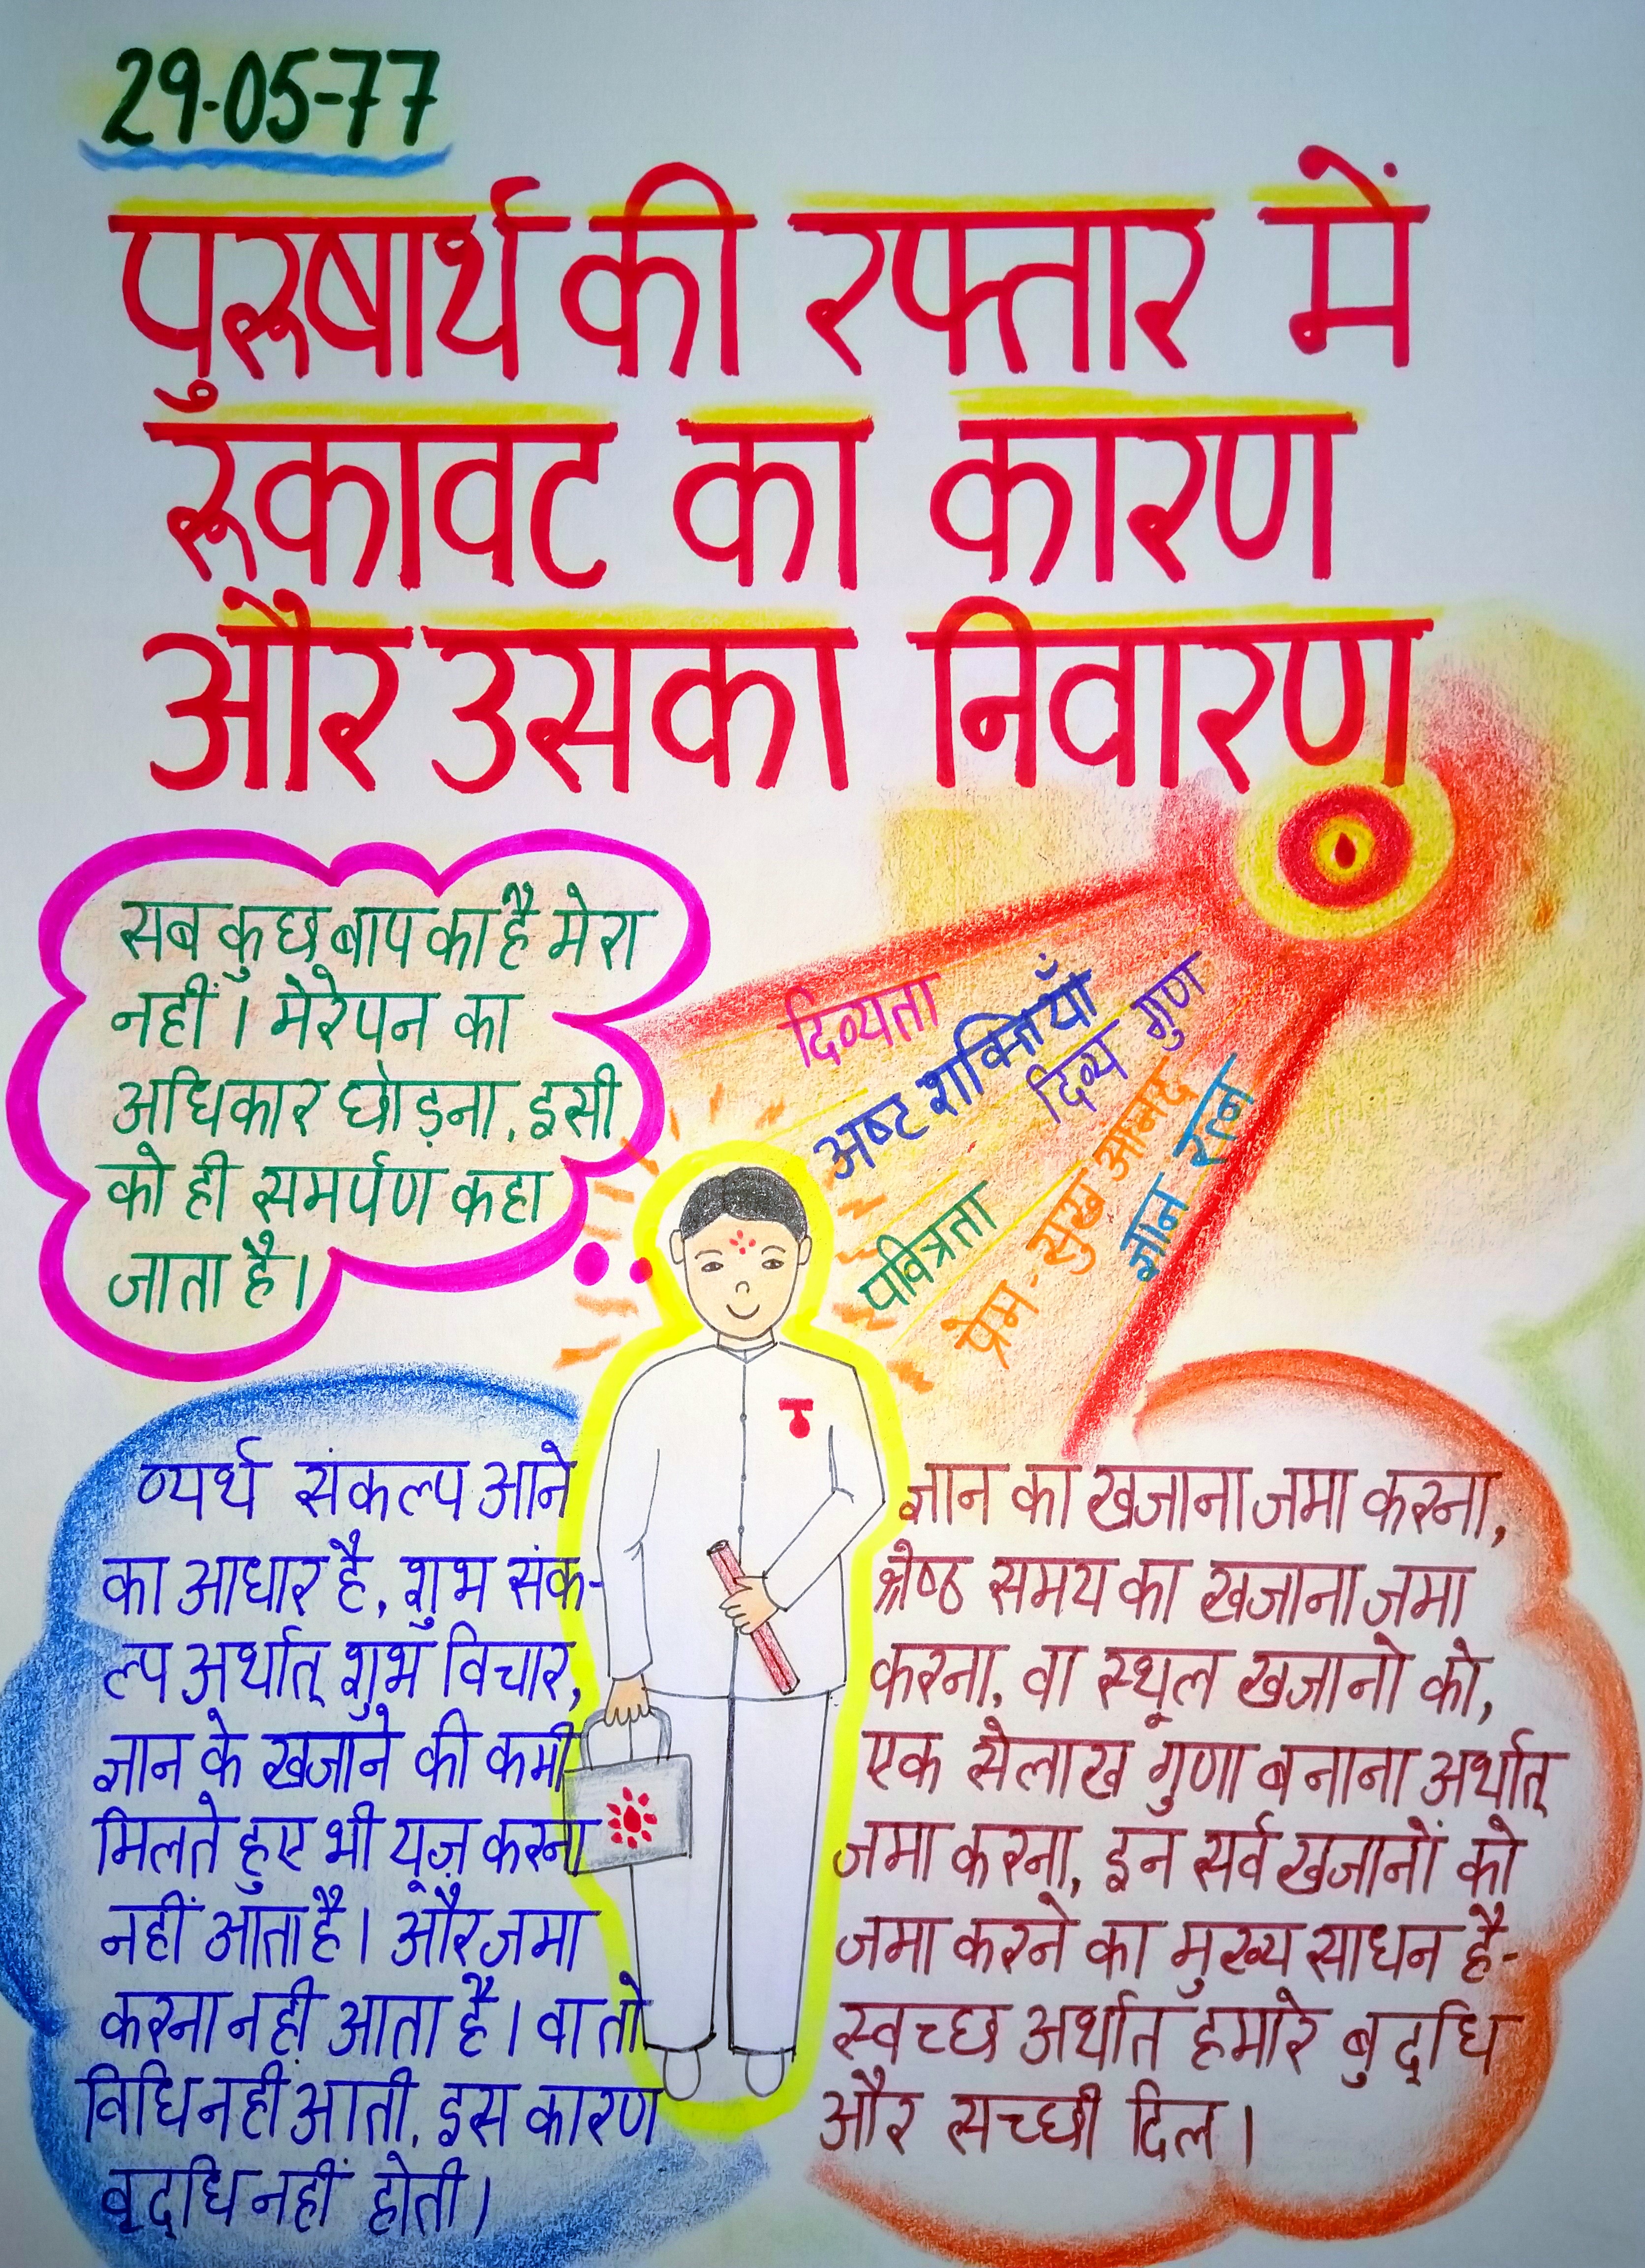 29-05-77
पुरूषार्थ की रफ्तार में
रूकावट का कारण
और उसका निवारण
सब कुछ बाप का है मेरा
नहीं। मेरेपन का
अधिकार छोड़ना, इसी
को ही समर्पण कहा
जाता है।
दिव्यता
अष्ट शक्तियाँ
दिव्य गुण
पवित्रता
प्रेम - सुख आनंद
ज्ञान रत्न
व्यर्थ संकल्प आने
का आधार है, शुभ संक-
ल्प अर्थात् शुभ विचार,
ज्ञान के खजाने की कमी
मिलते हुए भी यूज़ करना
नहीं आता है। और जमा
करना नहीं आता है। वा तो
विधि नहीं आती, इस कारण
वृद्धि नहीं होती।
ज्ञान का खजाना जमा करना,
श्रेष्ठ समय का खजाना जमा
करना, वा स्थूल खजानो को,
एक सेलाख गुणा बनाना अर्थात्
जमा करना, इन सर्व खजानों को
जमा करने का मुख्य साधन है-
स्वच्छ अर्थात हमारे बुद्धि
और सच्ची दिल।